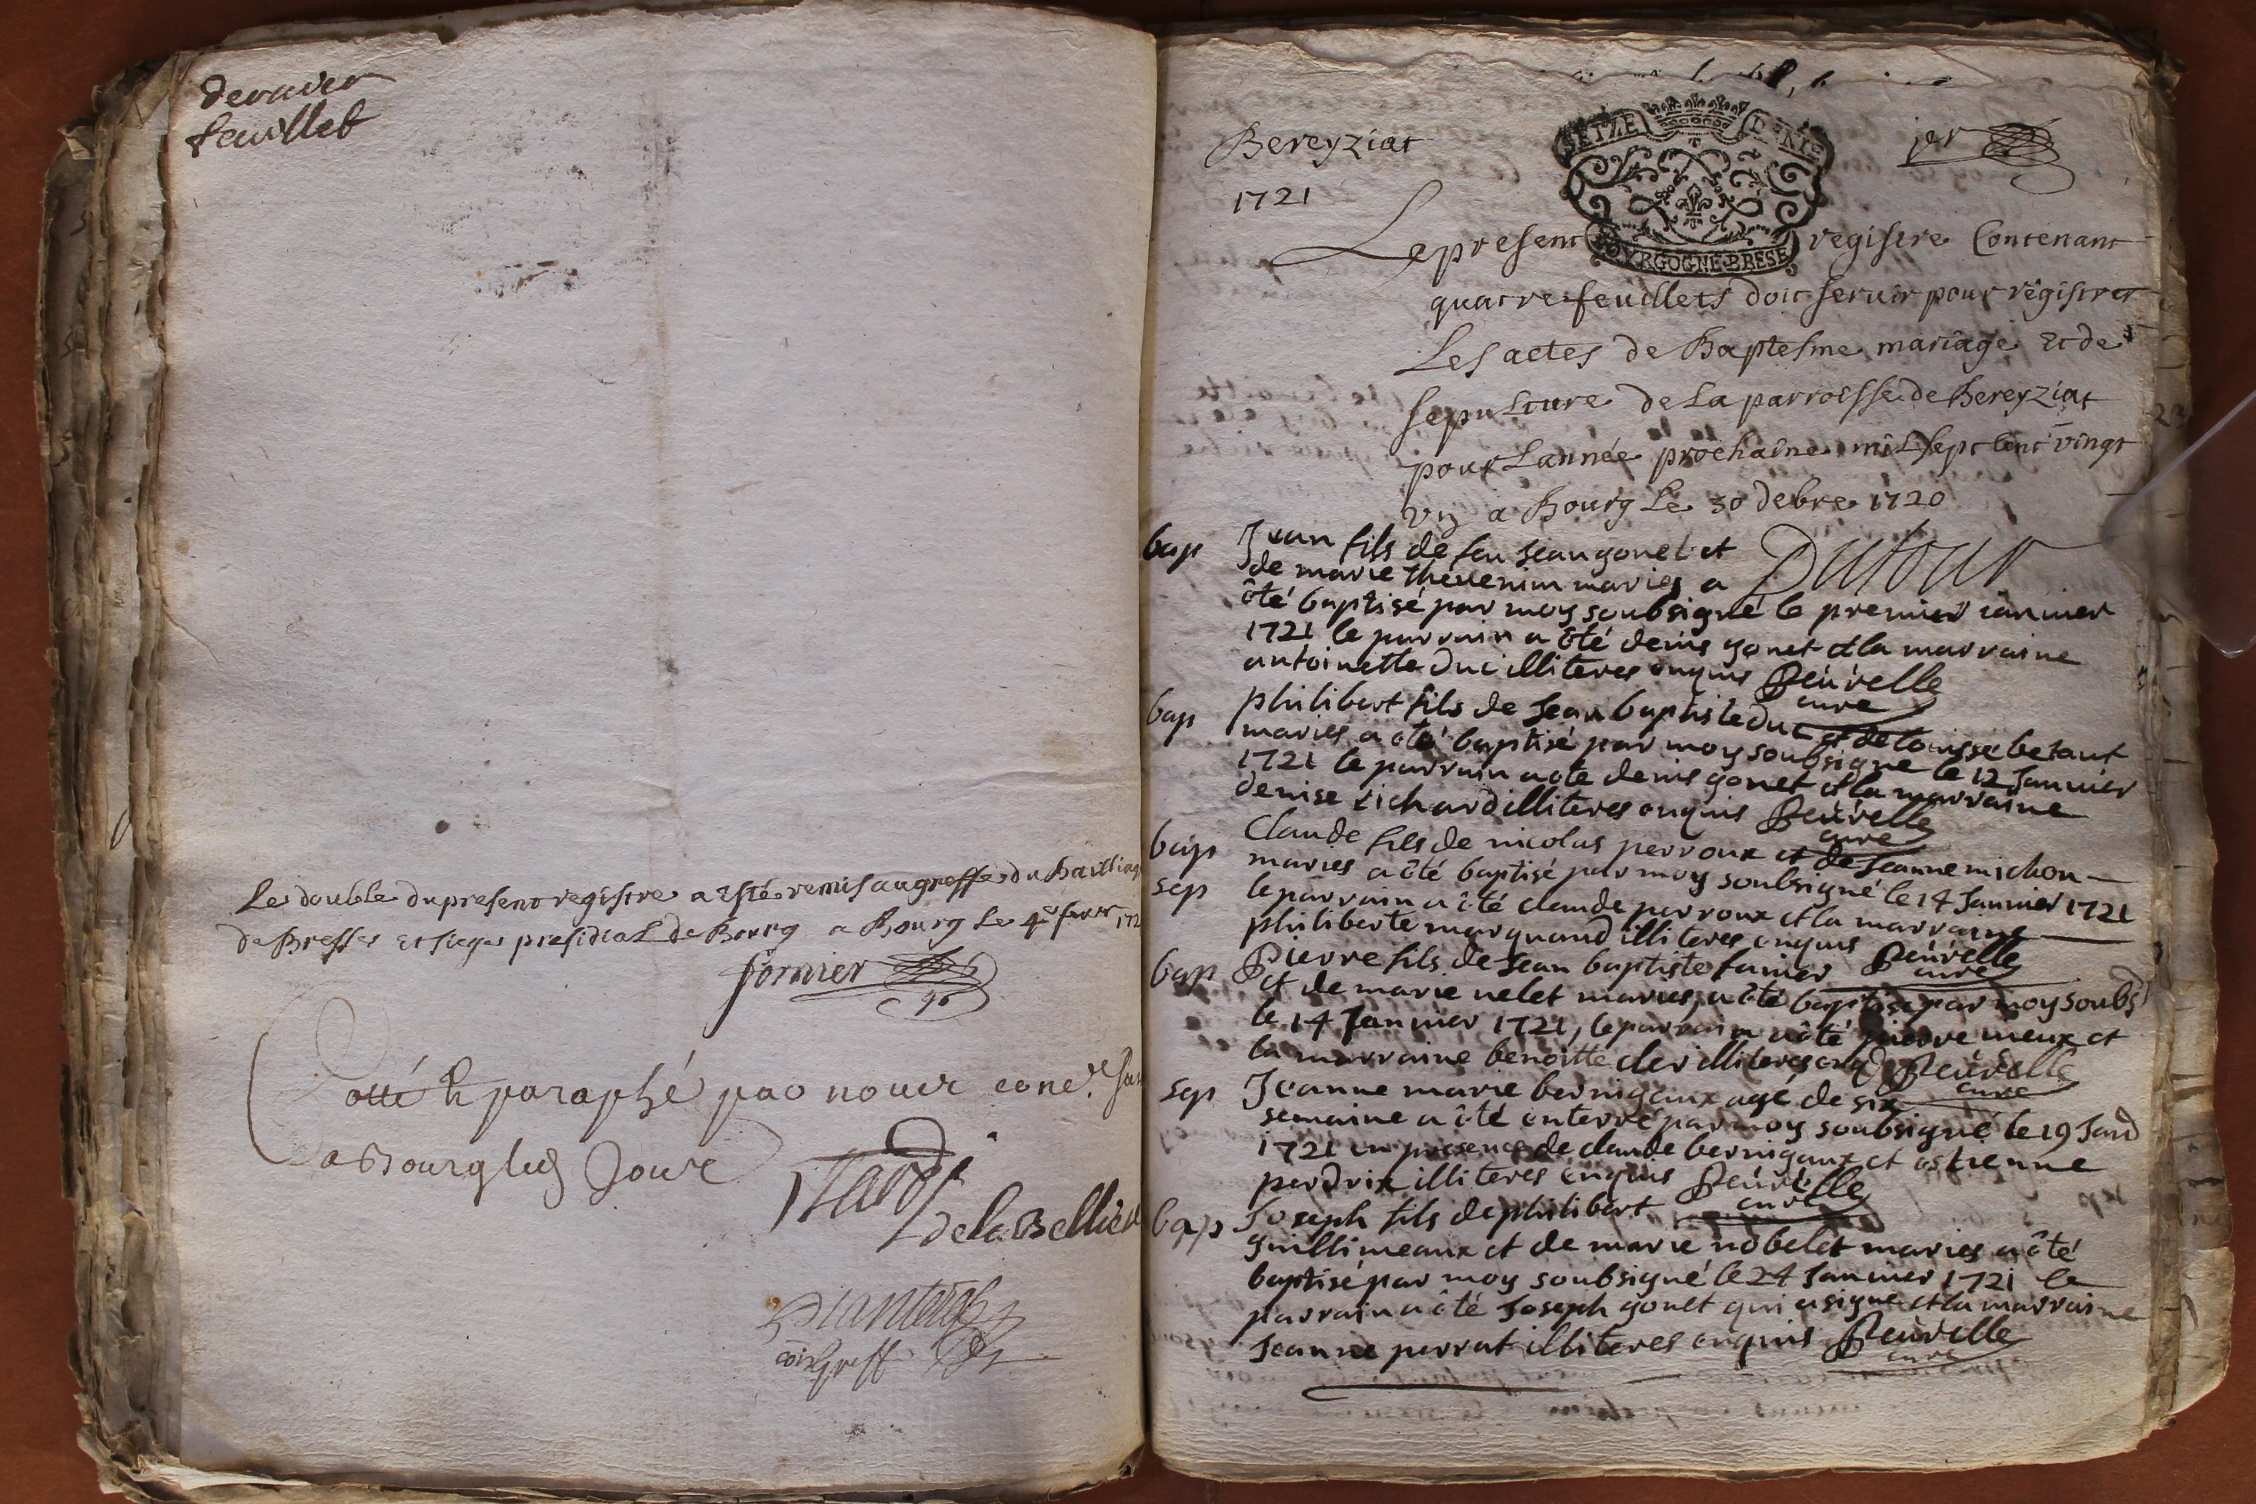 dernier
feuillet
Le double du present registre a Esté remis au greffe du Bailliag
de Bresse et siege presidial de Bourg a Bourg Le 4e 172
fornier
Cotté et paraphé par nous
a Bourg led Jour
de la Bellie
greff
Bereyziat
SEIZE DENIE
1er
1721
Le present registre Contenant
BOURGOGNE BRESE
quatre feuillets doit servir pour régistrer
Les actes de Baptesme mariage et de
sepulture de La parroisse de Bereyziat
pour Lannée prochaine mil sept cent vingt
vn a Bourg Le 30 debre 1720
Dufour
bap Jean fils de feu Jean gonet et
de marie thevenin maries a
ôté baptisé par moy soubsigné le premier ianuier
1721 le parrain a ôté denis gonet et la marraine
antoinette Duc illiteres enquis Peuvelle
cure
bap philibert fils de Jean baptiste duc et de louisse betaut
maries a ôté baptisé par moy soubsigne le 12 Januier
1721 le parrain a ote denis gonet et la marraine
denise richard illiteres enquis Peuvelle
cure
bap Claude fils de nicolas perroux et de Jeanne michon
maries a ôté baptisé par moy soubsigné le 14 Januier 1721
sep le parrain a ôté claude perroux et la marraine
philiberte marquand illiteres enquis Peuvelle
cure
bap Pierre fils de Jean baptiste
et de marie nelet maries a ôté baptise par moy soubs
le 14 Januier 1721, le parrain a ôté pierre meux et
la marraine benoitte illiteres enq Peuvelle
cure
sep Jeanne marie bernigaux agé de six
semaine a ôté enterré par moy soubsigné le 19 Jan
1721 en presence de claude bernigaux et estienne
perdrix illiteres enquis Peuvelle
cure
bap Joseph fils de philibert
guillimeaux et de marie nobelet maries a ôté
baptisé par moy soubsigné le 24 Januier 1721 le
parrain a ôté Joseph gonet qui a signe et la marraine
Jeanne perrat illiteres enquis Peuvelle
cure